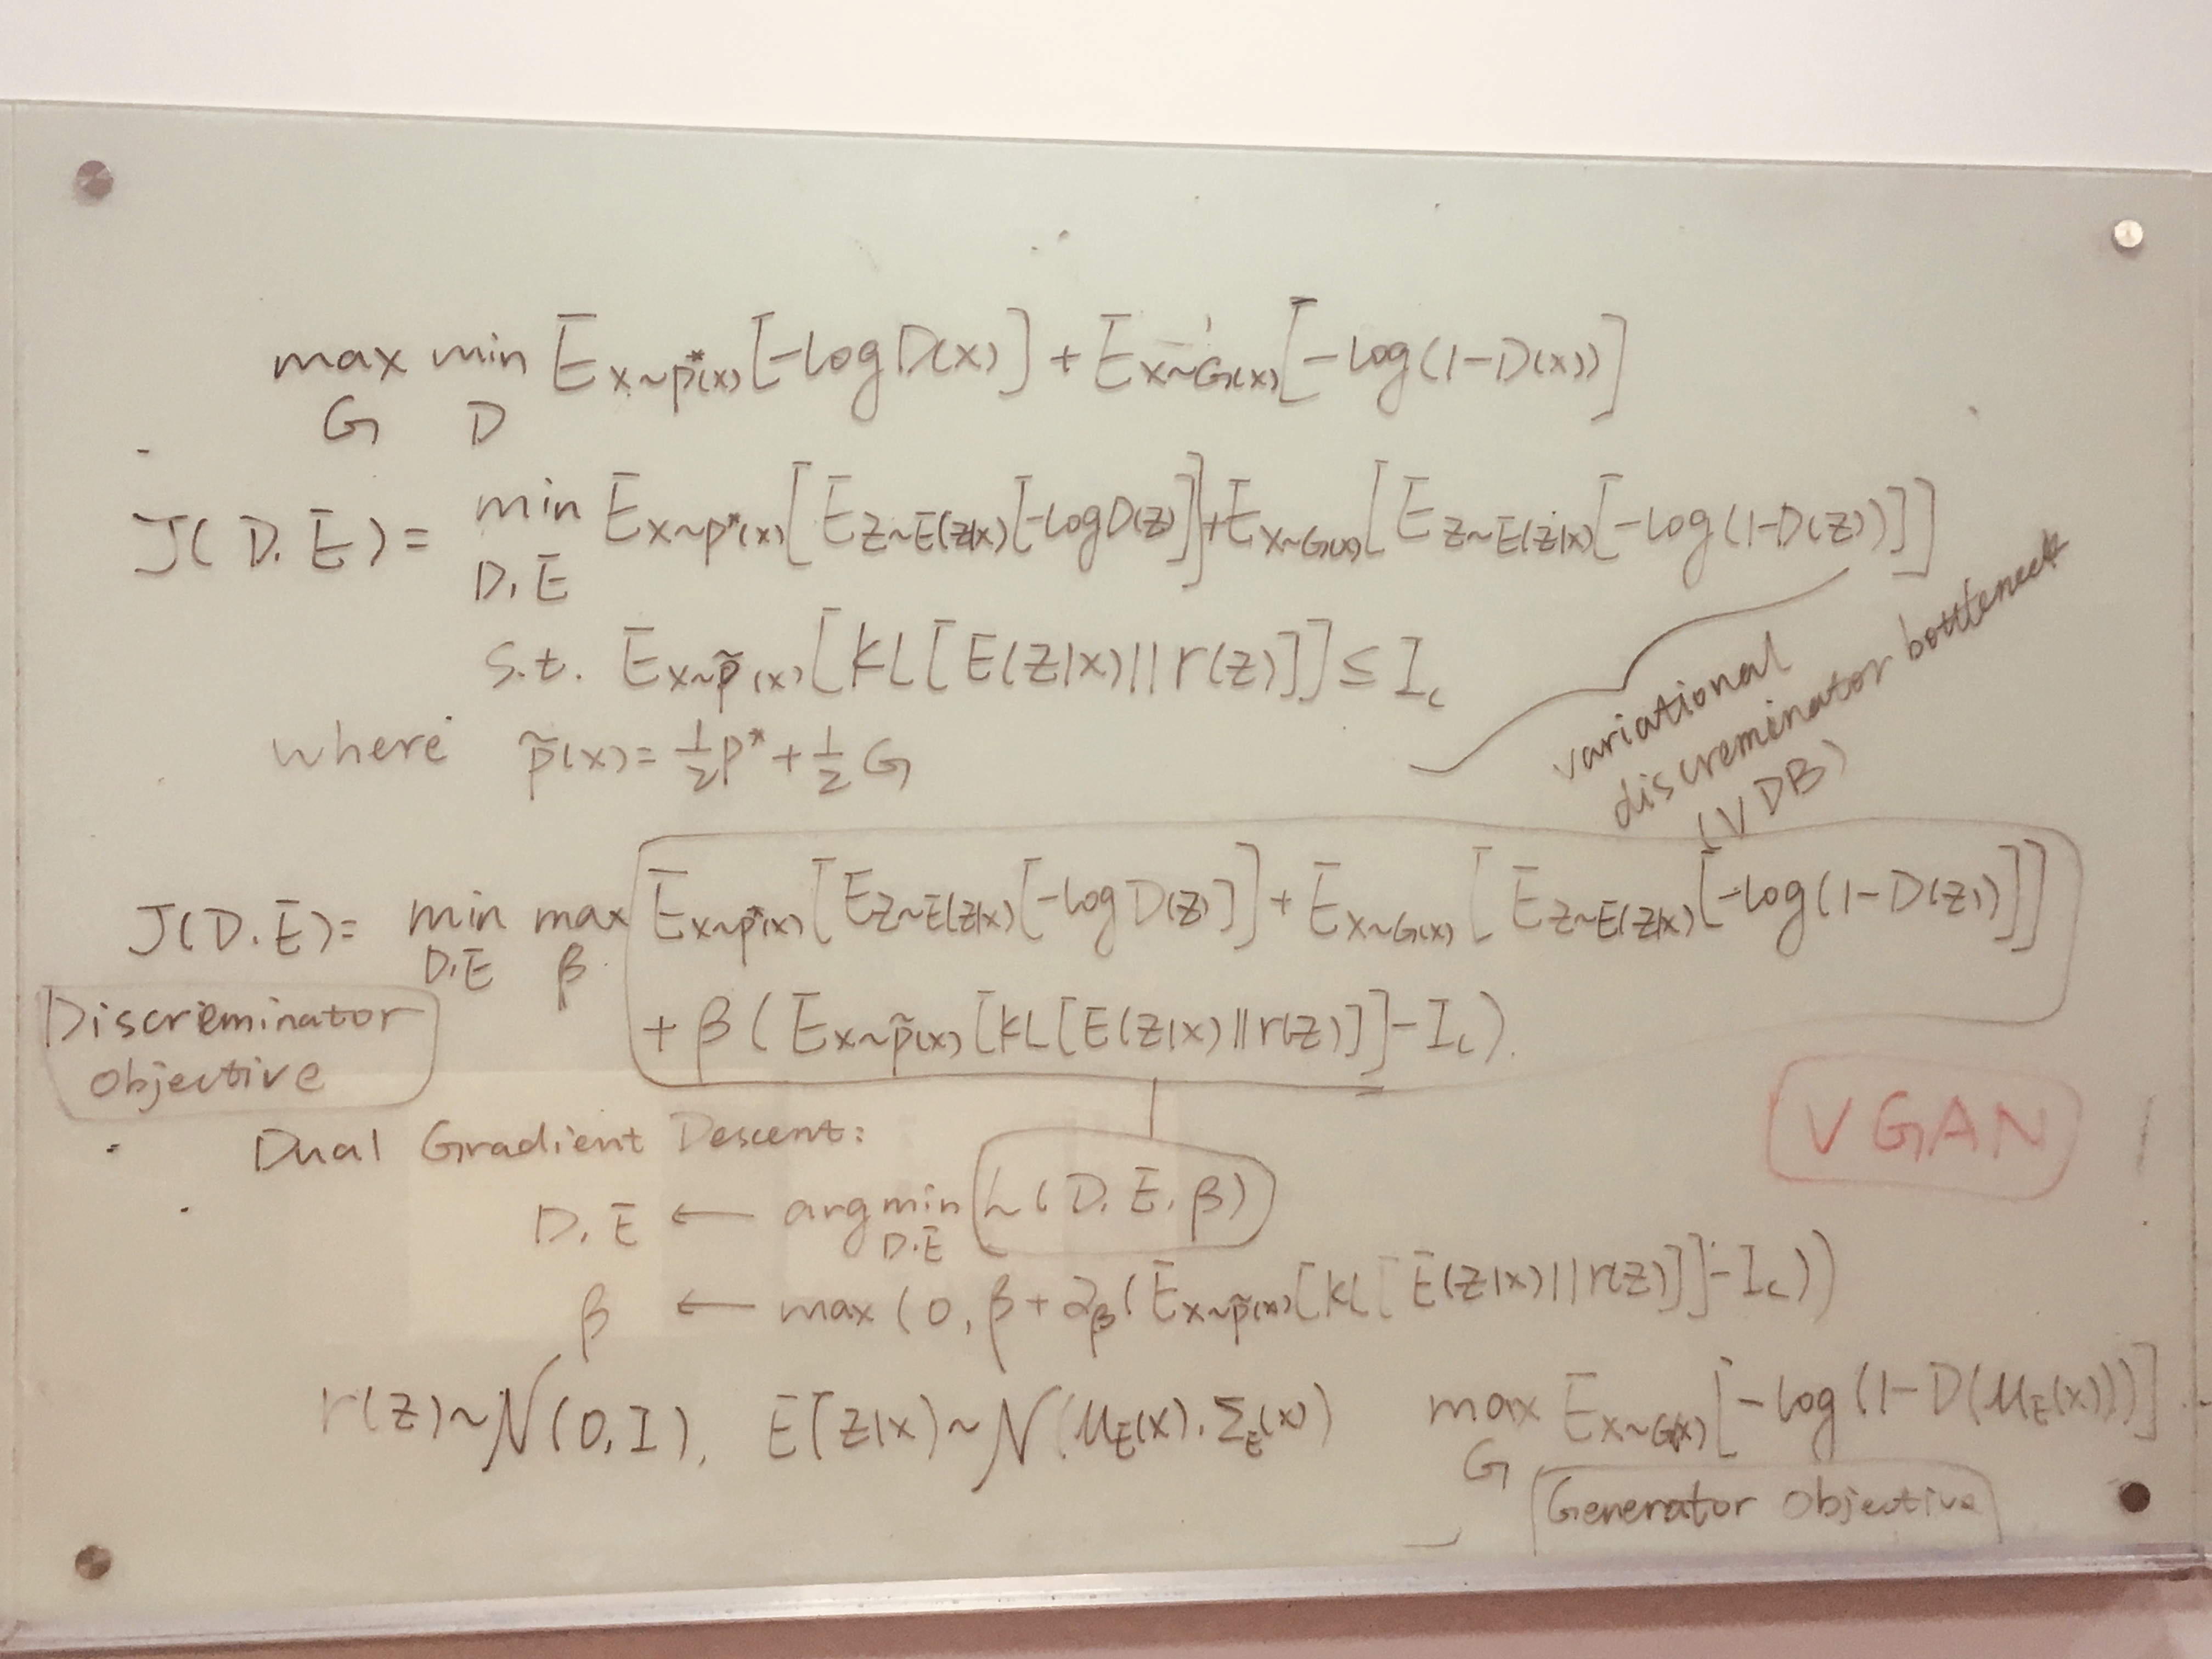 max min E x~p*(x) [-log D(x)] + E x~G(x) [-log(1-D(x))]
G D
J(D.E) = min E x~p*(x) [E z~E(z|x) [-log D(z)]] + E x~G(x) [E z~E(z|x) [-log(1-D(z))]]
D,E
s.t. E x~p̃(x) [KL[E(z|x)||r(z)]] ≤ Ic
where p̃(x) = 1/2 p* + 1/2 G
variational
discreminator bottleneck
(VDB)
J(D.E) = min max E x~p*(x) [E z~E(z|x) [-log D(z)]] + E x~G(x) [E z~E(z|x) [-log(1-D(z))]]
D,E β
+ β(E x~p̃(x) [KL[E(z|x)||r(z)]] - Ic).
Discreminator
objective
VGAN
Dual Gradient Descent:
D,E ← argmin L(D,E,β)
D.E
β ← max(0, β + αβ(E x~p̃(x) [KL[E(z|x)||r(z)]] - Ic))
r(z)~N(0,I), E(z|x)~N(μE(x), ΣE(x)) max E x~G(x) [-log(1-D(μE(x)))]
G
Generator objective